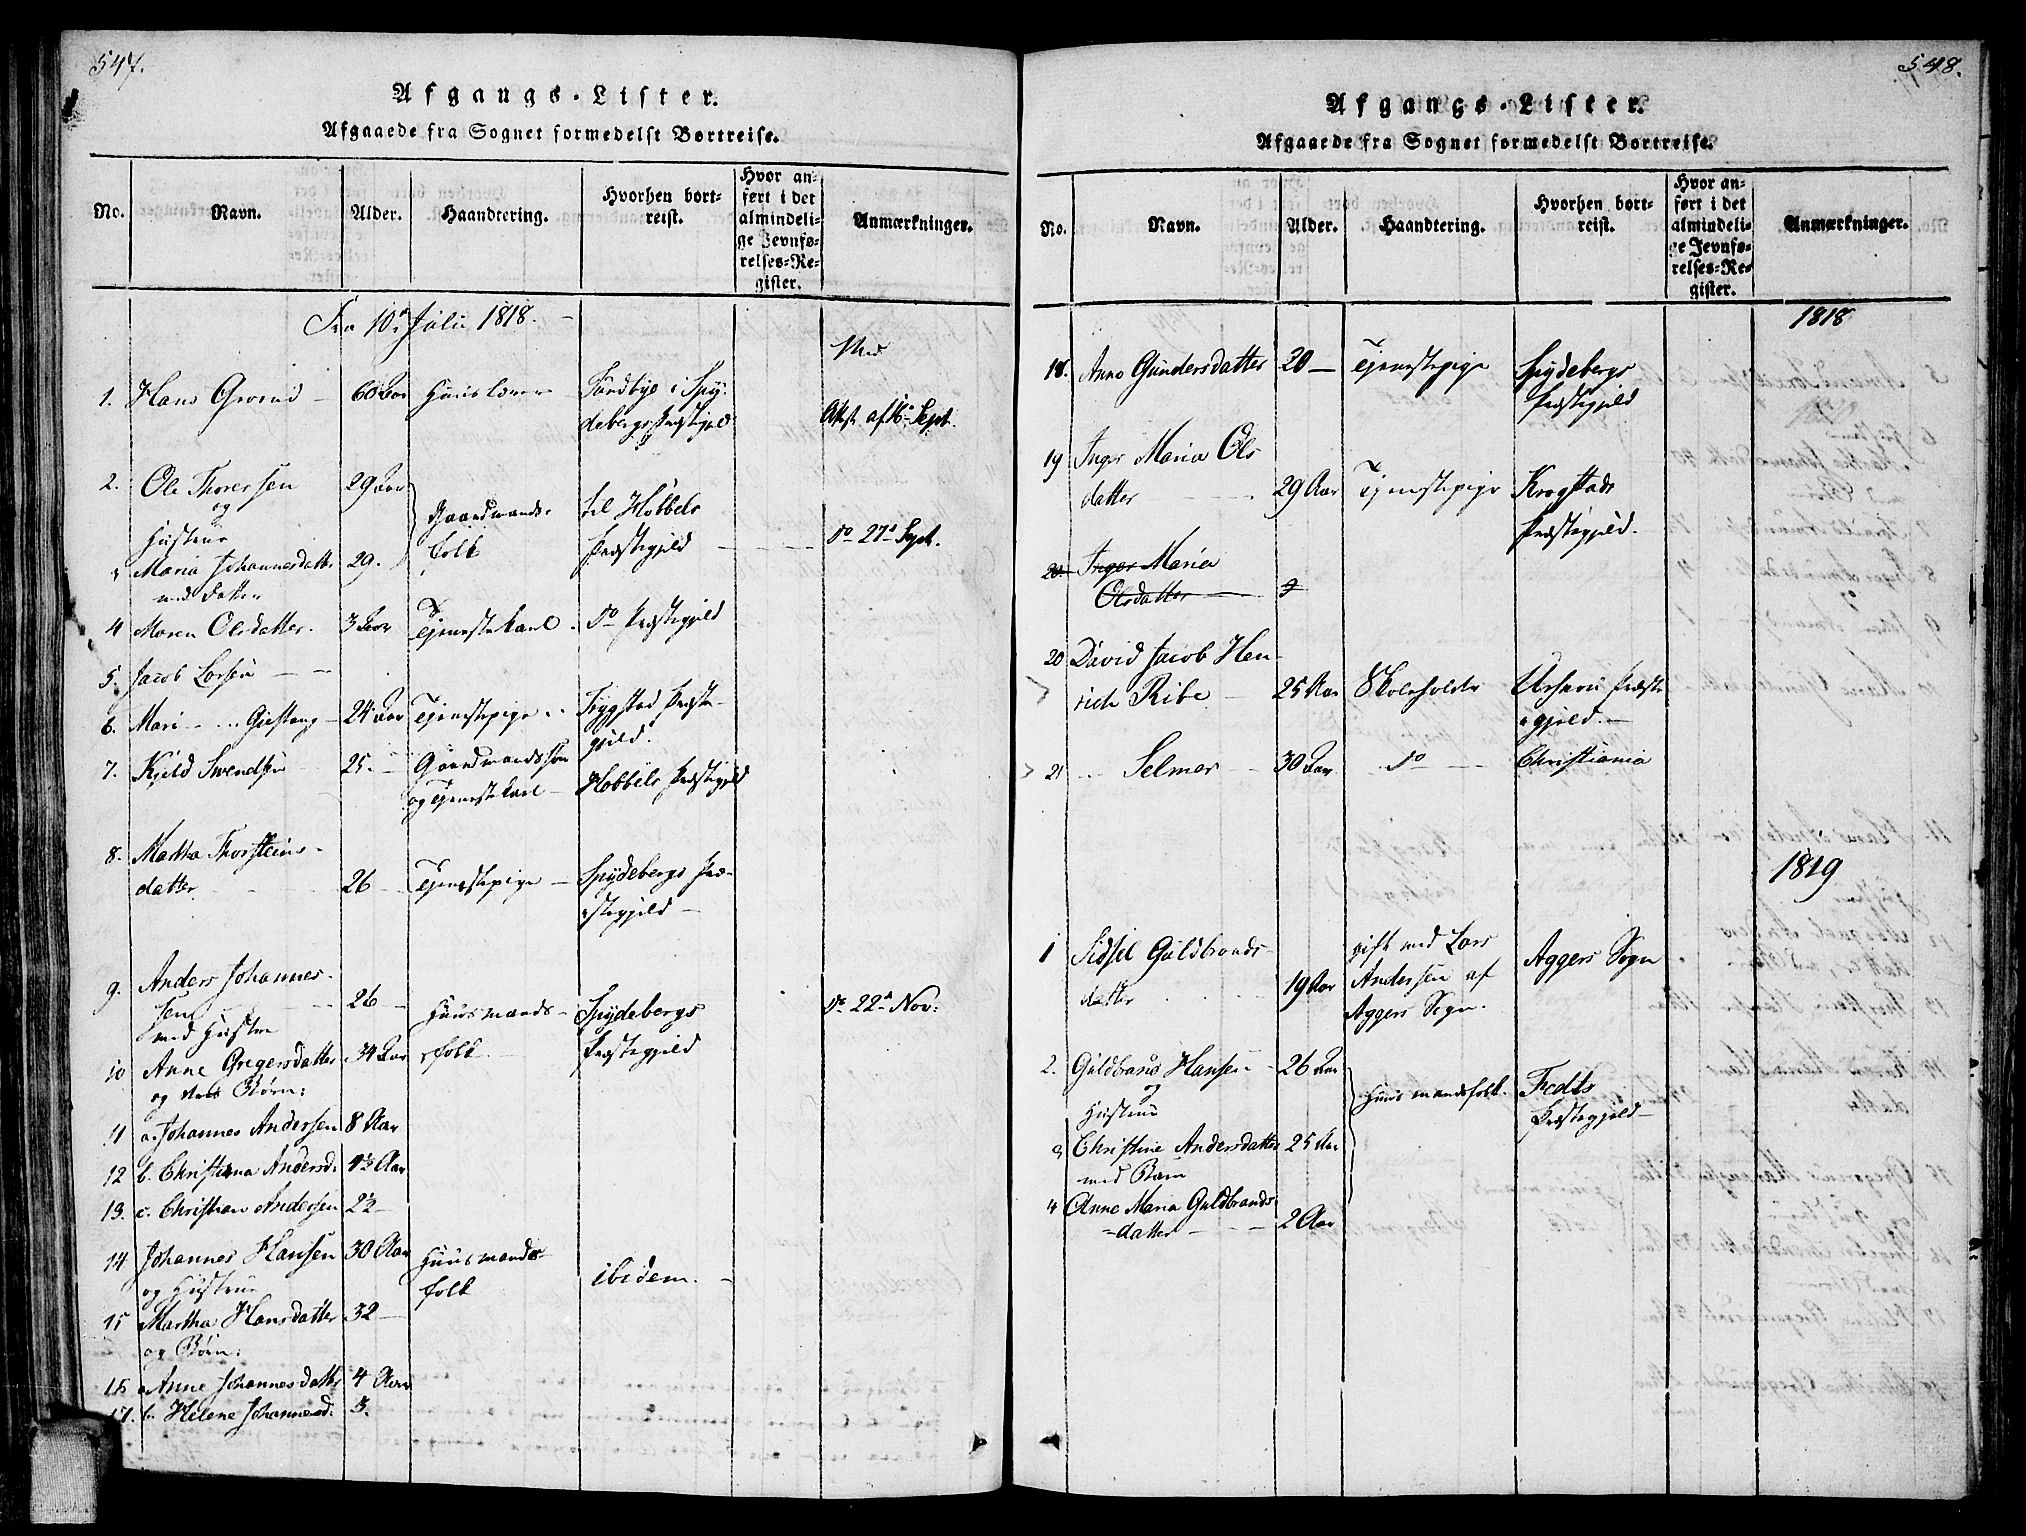 547.
Afgangs-Lister.
Afgaaede fra Sognet formedelst Bortreise.
No.
Navn.
Alder.
Haandtering.
Hvorhen bort-
reist.
Hvor an-
ført i det
almindeli-
ge Jevnfø-
relses-Re-
gister.
Anmærkninger.
Fra 10de Julii 1818.
1. Hans Grorud 60 Aar Huuslærer Sundbye i Spy-
debergs Præstegjeld
Attest af 16. Sept.
2. Ole Thoresen 29 Aar
og
Hustrue
Gaardmands-
folk
til Hobbels
Præstegjeld
do 27de Sept.
3 Maria Johannesdatter 29.
med Datter
4 Maren Olsdatter. 3 Aar Tjenestekarl do Præstegjeld
5. Jacob Larsen
6. Mari Gjestang 24 Aar Tjenestepige Tryggstad Præste-
gjeld.
7. Kjeld Svendsen 25. Gaardmandssøn
og Tjenestekarl Hobbels Præstegjeld
8. Martha Thorsteins-
datter 26 Tjenestepige Spydebergs Præ-
stegjeld
9. Anders Johannes-
sen 26 Huusmands- Spydebergs do 22de Nov:
med Hustru
10 Anne Gregersdatter 34 Aar folk Præstegjeld
og Børn:
11 a. Johannes Andersen 8 Aar
12 b. Christiana Andersd. 4½ Aar
13. c. Christian Andersen 2½
14 Johannes Hansen 30 Aar Huusmands-
og Hustrue folk ibidem.
15 Martha Hansdatter 32
og Børn:
16 a Anne Johannesdatter 4 Aar
17. b. Helene Johannesd. 3.
548.
Afgangs-Lister.
Afgaaede fra Sognet formedelst Bortreise.
No.
Navn.
Alder.
Haandtering.
Hvorhen bort-
reist.
Hvor an-
ført i det
almindeli-
ge Jevnfø-
relses-Re-
gister.
Anmærkninger.
1818
18. Anne Gundersdatter 20 Tjenestepige Spydebergs
Præstegjeld
19 Inger Maria Ols
datter 29 Aar Tjenestepige Krogstads
Præstegjeld.
20. Inger Maria
Olsdatter 2
20 David Jacob Hen-
rich Ribe 25 Aar Skoleholder Urskou Præste
gjeld.
21 Selmer 30 Aar do Christiania
1819
1 Sidsel Guldbrands-
datter 19 Aar
gift med Lars
Andersen af
Aggers Sogn.
Aggers Sogn
2. Guldbrand Hansen 26 Aar
og
Hustrue
Huusmandsfolk.
Fedts
Præstegjeld
3 Christine Andersdatter 25 Aar
med Barn
4 Anne Maria Guldbrands-
datter 2 Aar